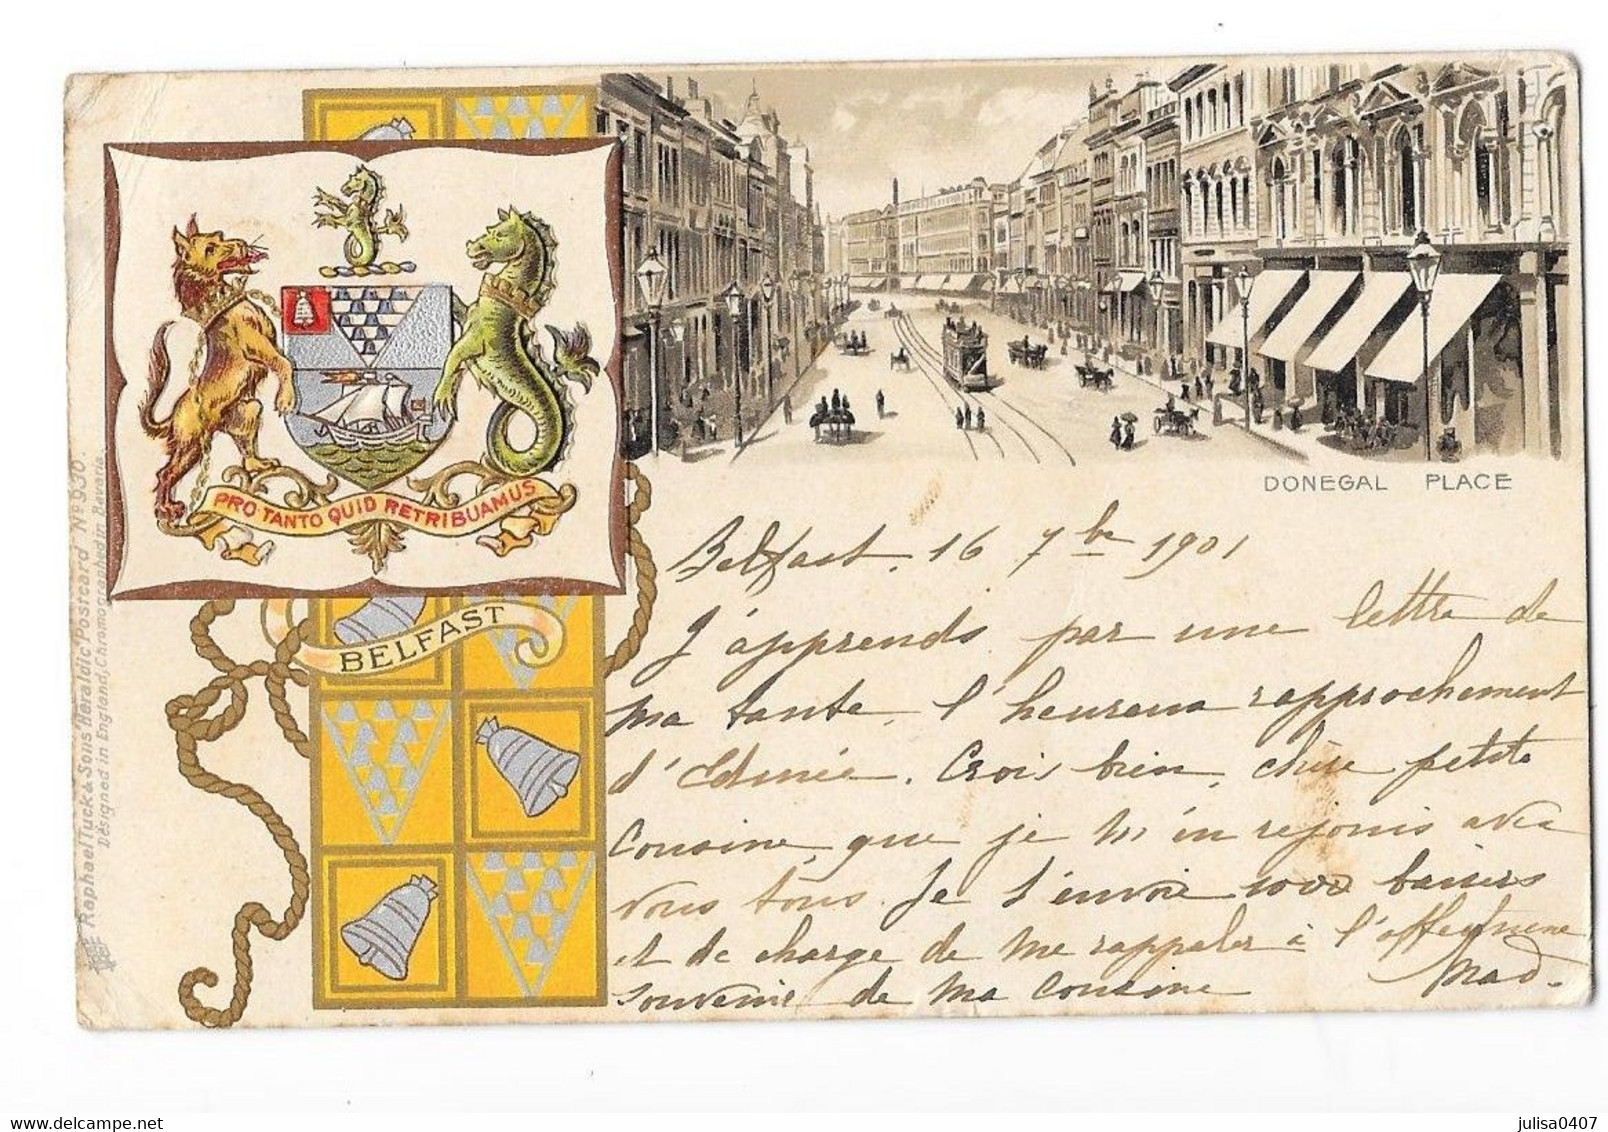 PRO TANTO QUID RETRIBUAMUS
BELFAST
Raphael Tuck & Sons Heraldic Postcard Nº 930.
Designed in England, Chromographed in Bavaria.
DONEGAL PLACE
Belfast, 16 7bre 1901
J'apprends par une lettre de
ma tante, l'heureux rapprochement
d'Edmée. Crois bien, chère petite
Cousine, que je m'en réjouis avec
vous tous. Je t'envoie 1000 baisers
et te charge de me rappeler à l'affectueux
souvenir de ma Cousine Mad.
julisa0407